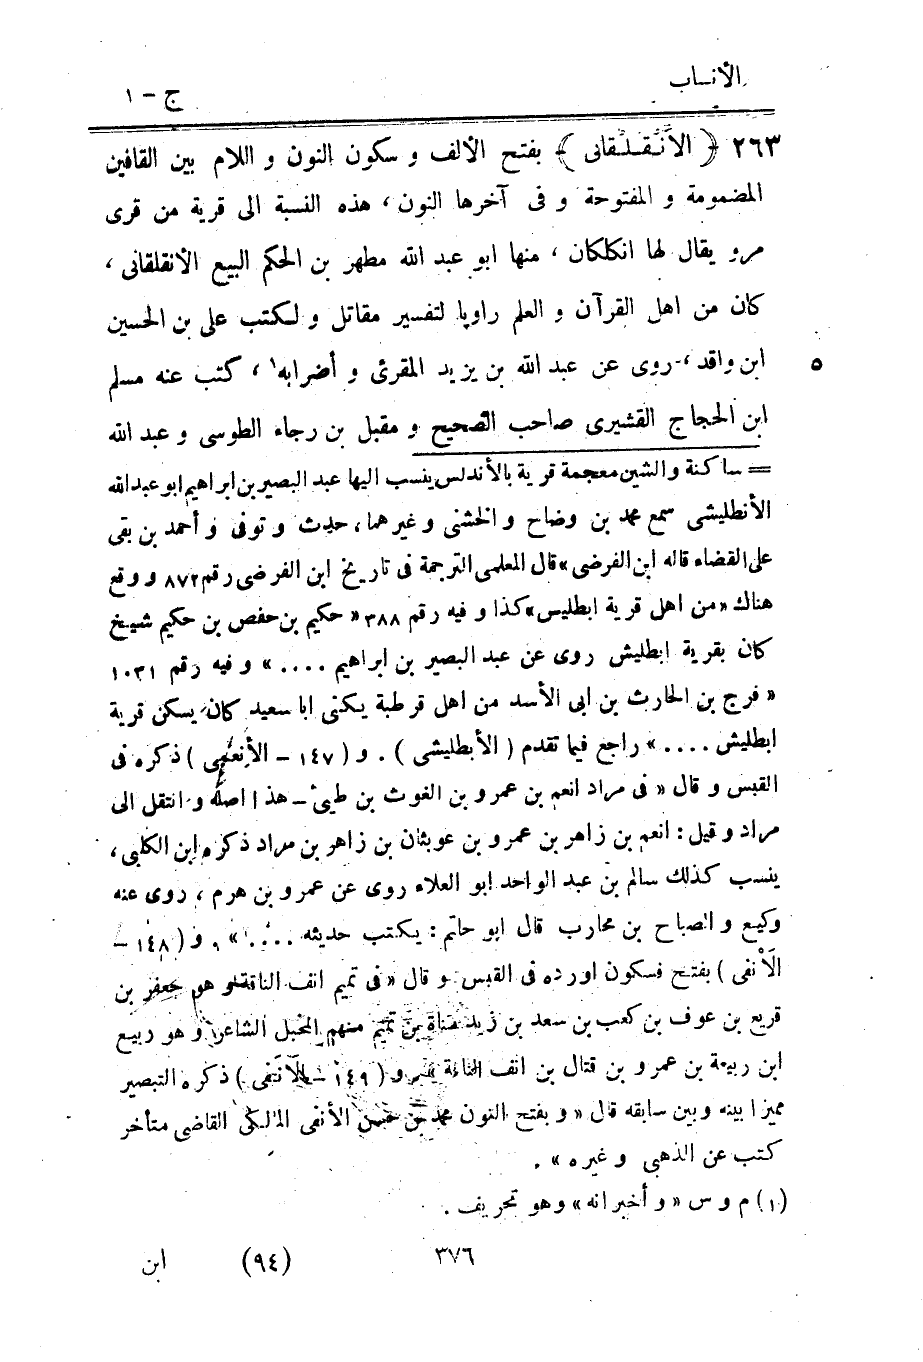 الأنساب
ج - ١
٢٦٣ ﴿ الأَنْقُلْقانى ﴾ بفتح الألف و سكون النون و اللام بين القافين
المضمومة و المفتوحة و فى آخرها النون، هذه النسبة الى قرية من قرى
مرو يقال لها انكلكان، منها ابو عبد الله مطهر بن الحكم البيع الأنقلقانى،
كان من اهل القرآن و العلم راويا لتفسير مقاتل و لكتب على بن الحسين
ابن واقد، روى عن عبد الله بن يزيد المقرئ و أضرابه ١، كتب عنه مسلم
٥
ابن الحجاج القشيرى صاحب الصحيح و مقبل بن رجاء الطوسى و عبد الله
= ساكنة والشين معجمة قرية بالأندلس ينسب اليها عبد البصير بن ابراهيم ابو عبد الله
الأنطليشى سمع محمد بن وضاح و الخشنى و غيرهما، حدث و توفى و أحمد بن بقى
على القضاء قاله ابن الفرضى» قال المعلمى الترجمة فى تاريخ ابن الفرضى رقم ٨٧٢ ووقع
هناك «من اهل قرية ابطليس» كذا و فيه رقم ٣٨٨ «حكيم بن حفص بن حكيم شيخ
كان بقرية ابطليش روى عن عبد البصير بن ابراهيم ....» و فيه رقم ١٠٣١
« فرج بن الحارث بن ابى الأسد من اهل قرطبة يكنى ابا سعيد كان يسكن قرية
ابطليش ....» راجع فيما تقدم ( الأبطليشى ) . و ( ١٤٧ - الأنعمى ) ذكره فى
القبس و قال « فى مراد انعم بن عمرو بن الغوث بن طيئ - هذا اصله و انتقل الى
مراد و قيل : انعم بن زاهر بن عمرو بن عوبثان بن زاهر بن مراد ذكره ابن الكلبى،
ينسب كذلك سالم بن عبد الواحد ابو العلاء روى عن عمرو بن هرم، روى عنه
وكيع و الصباح بن محارب قال ابو حاتم : يكتب حديثه ....» . و ( ١٤٨ -
الأنفى ) بفتح فسكون اورده فى القبس و قال « فى تميم انف الناقة و هو جعفر بن
قريع بن عوف بن كعب بن سعد بن زيد مناة بن تميم منهم المخبل الشاعر و هو ربيع
ابن ربيعة بن عمرو بن قتال بن انف الناقة . و ( ١٤٩ - الأنفى ) ذكره التبصير
مميزا بينه وبين سابقه قال « و بفتح النون محمد بن حسن الأنفى المالكى القاضى متأخر
كتب عن الذهبى و غيره » .
(١) م و س « و أخبرانه » وهو تحريف .
٣٧٦
(٩٤)
ابن